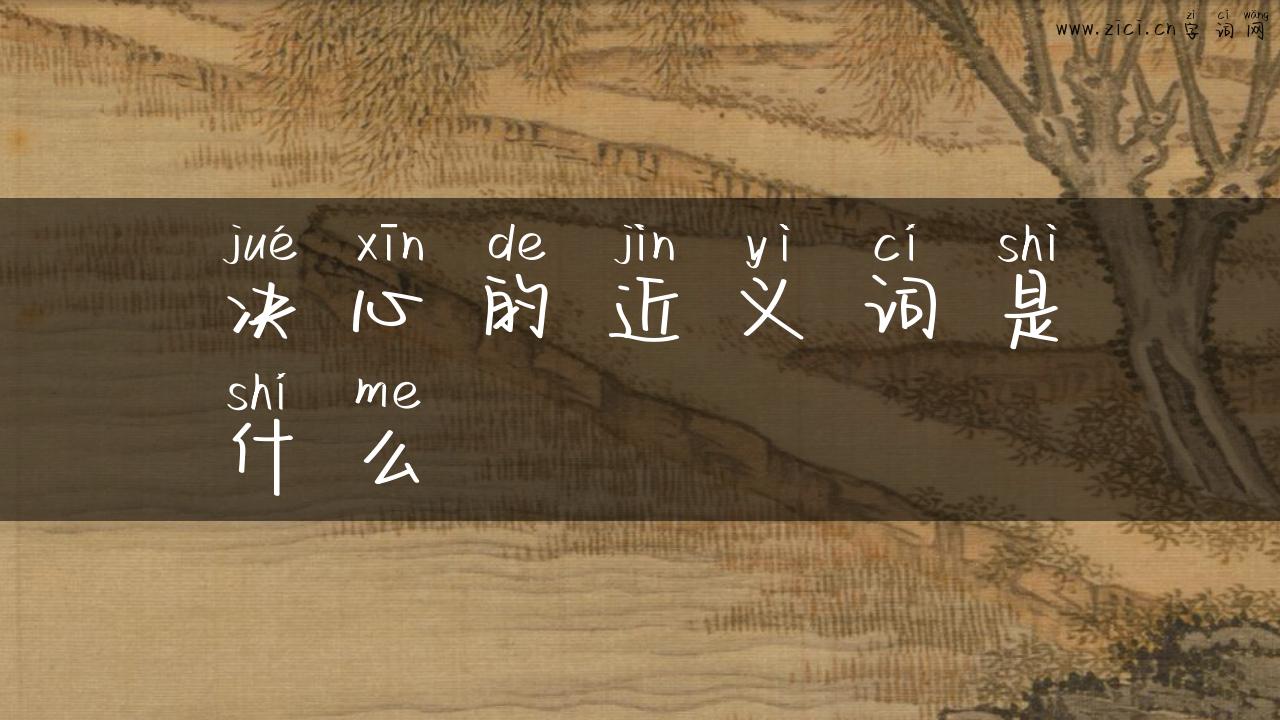 zì cí wǎng
www.zicí.cn字词网
jué xīn de jìn yì cí shì
决心的近义词是
shí me
什么